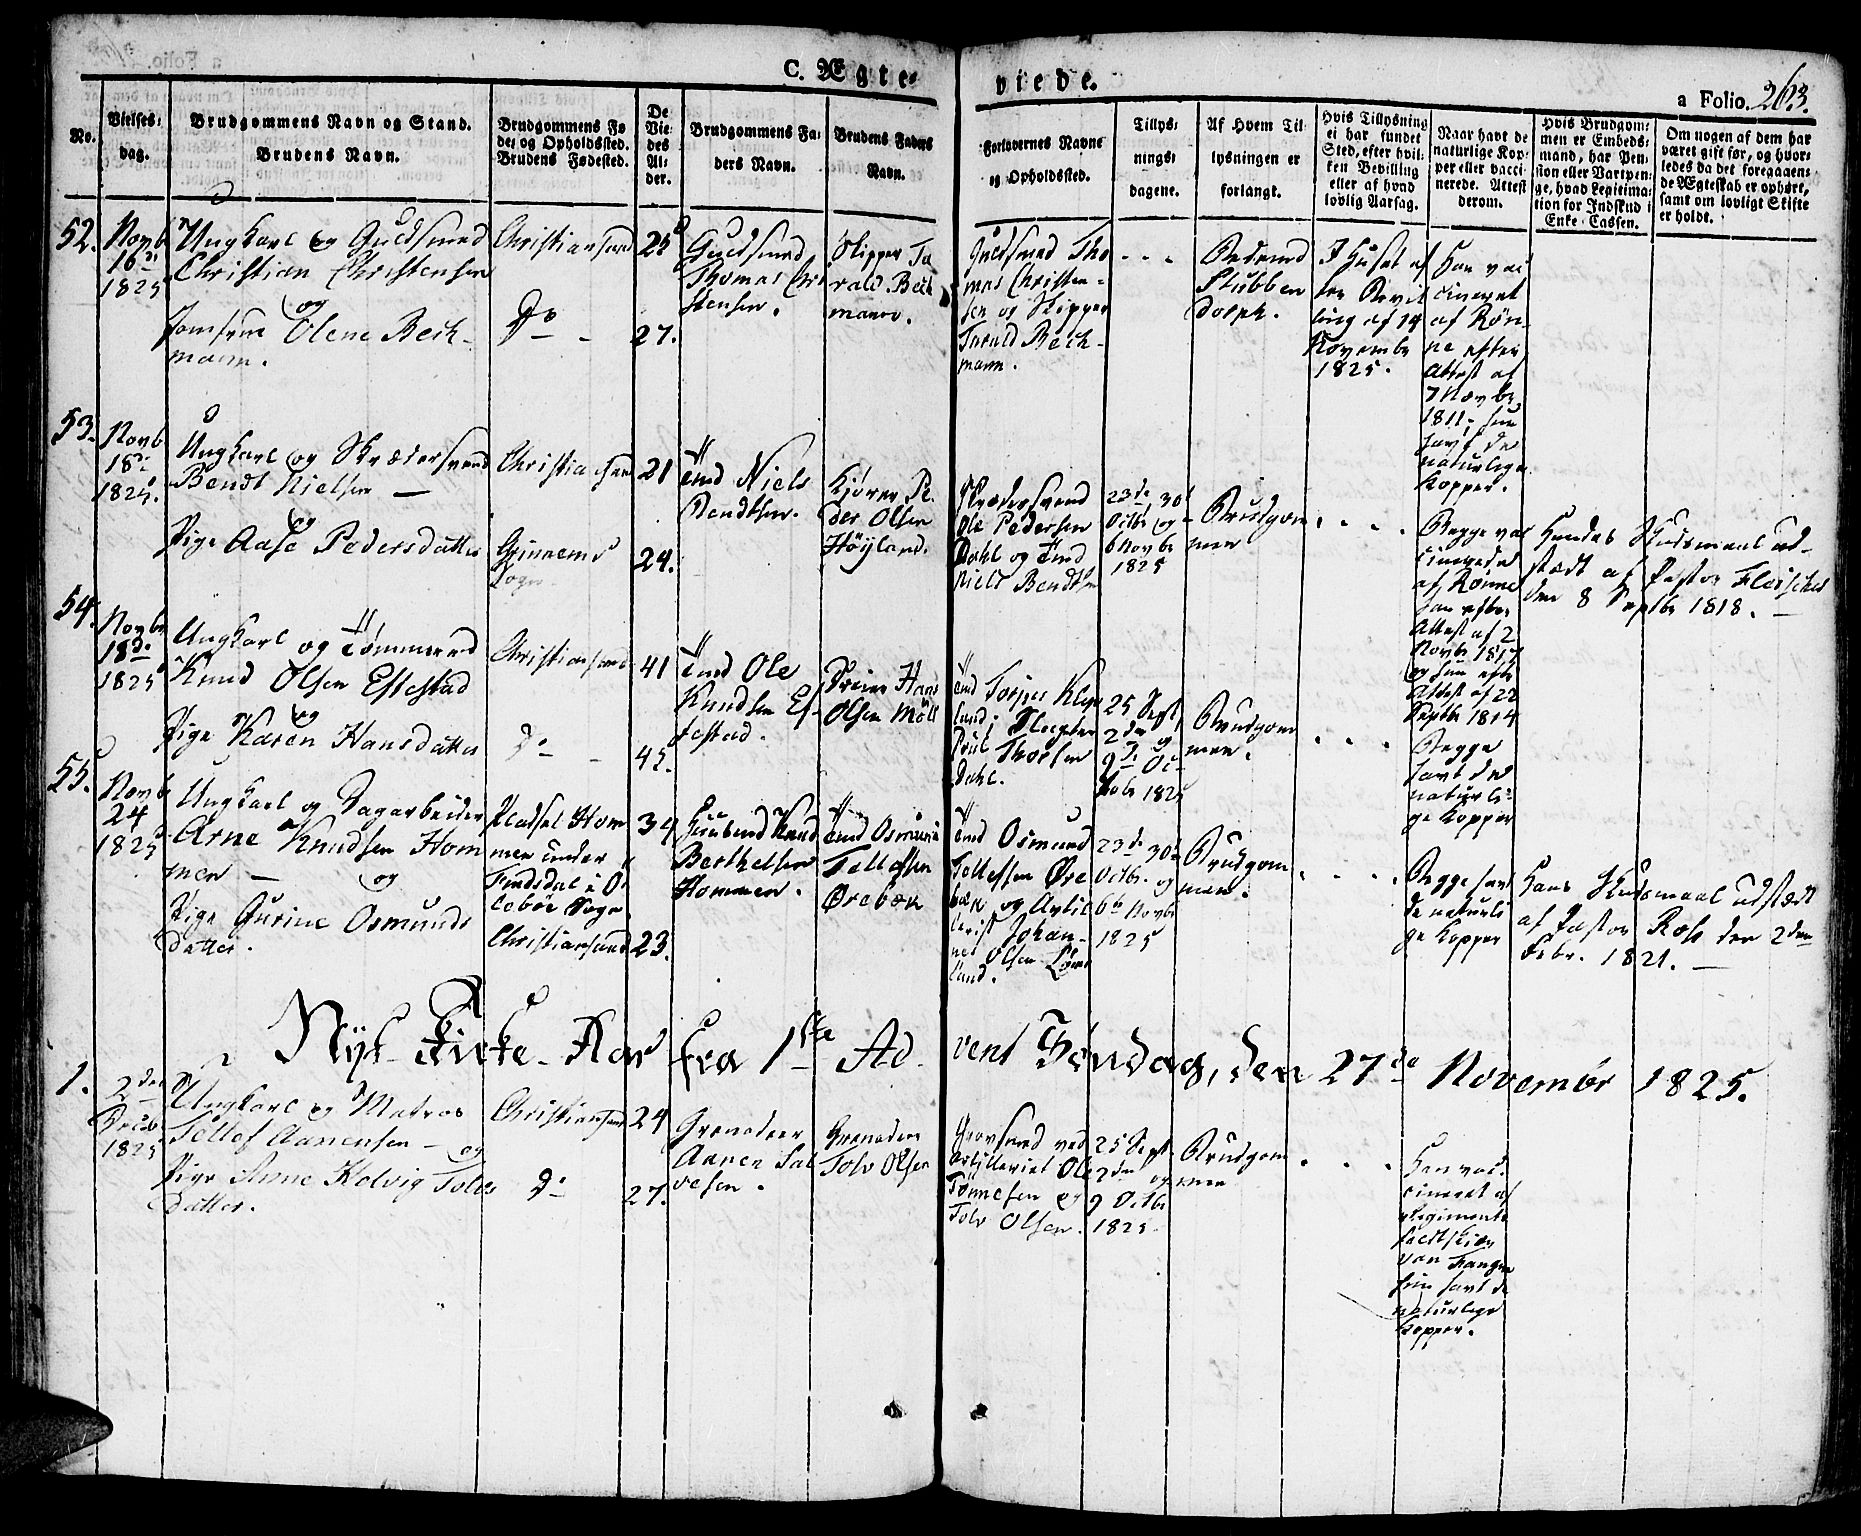 C. Ægteviede.
a Folio. 263.
No.
Vielses-
dag.
Brudgommens Navn og Stand.
Brudens Navn.
Brudgommens Fø
de- og Opholdssted.
Brudens Fødested.
De
Vie-
des
Al-
der.
Brudgommens Fa-
ders Navn.
Brudens Faders
Navn.
Forlovernes Navne
og Opholdssted.
Tillys-
nings-
dagene.
Af Hvem Til-
lysningen er
forlangt.
Hvis Tillysning
ei har fundet
Sted, efter hvil-
ken Bevilling
eller af hvad
lovlig Aarsag.
Naar havt de
naturlige Kop-
per eller vacci-
nerede. Attest
derom.
Hvis Brudgom-
men er Embeds-
mand, har Pen-
sion eller Vartpen-
ge, hvad Legitima-
tion for Indskud i
Enke-Cassen.
Om nogen af dem har
været gift før, og hvor-
ledes da det foregaaen-
de Ægteskab er ophørt,
samt om lovligt Skifte
er holdt.
52.
Novb
16de
1825
Ungkarl og Guldsmed
Christian Christensen
og
Jomfrue Olene Beck-
mann.
Christiansand
Do
25
27.
Guldsmed
Thomas Chri
stensen.
Skipper Ta
rald Beck
mann.
Guldsmed Tho
mas Christen-
sen og Skipper
Tarald Beck-
mann.
- - -
Stubben
dorph.
I Huset ef
ter Bevil
ling af 14
Novembr
1825.
Han vac
cineret
af Røn-
ne efter
Attest af
7 Novbr
1811, hun
havt de
naturlige
Kopper.
53.
Novb
18de
1825.
Ungkarl og Skrædersvend
Bendt Nielsen
og
Pige Aase Pedersdatter
Christiansand
Sogn
21
24.
Tmd Niels
Bendtsen.
Kjører Pe-
der Olsen
Høyland.
Skrædersvend
Ole Pedersen
Dahl og Tmd
Niels Bendtsen
23de, 30te
Octbr og
6 Novbr
1825
Brudgom
men
Begge vac
cinerede
af Rønne
han efter
Attest af 2
Novbr 1817
og hun efter
Attest af 22
Septbr 1814
Hendes Skudsmaal ud-
stædt af Pastor Fleischer
den 8 Septbr 1818.
54.
Novbr
18de
1825
Ungkarl og Tømmermd
Knud Olsen Eftestad
og
Pige Karen Hansdatter
Christiansand
Do
41
45.
Tmd Ole
Knudsen Ef-
testad.
Hans
Olsen Møll
25 Sept,
2den og
9de Oc-
tobr 1825
Brudgom
men.
Dahl.
Begge
havt de
naturli-
ge Kopper
55.
Novb
24
1825
Ungkarl og Dagarbeider
Arne Knudsen Hom
men
og
Pige Gurine Osmunds
datter.
Pladset Hom
men under
Findsdal i O
debøe Sogn
Christiansand
34
23.
Huusmd Knud
Berthelsen
Hommen.
Tmd Osmund
Tellefsen
Ørebæk
Tmd Osmund
Tellefsen Øre
bæk og Artil
lerist Johan-
nes Olsen
land.
23de 30te
Octbr. og
6te Novbr
1825
Brudgom
men.
Begge havt
de naturli
ge Kopper
Hans Skudsmaal udstædt
af Pastor Rosh den 2den
Febr. 1821.
Nyt Kirke-Aar fra 1ste Advent Søndag, den 27de Novembr 1825.
1.
2den
Decb
1825
Ungkarl og Matros
Tellef Aanensen og
Pige Anne Helvig Tolvs
datter.
Christiansand
Do
24
27.
Grenadeer
Aanen Sal
vesen.
Grenadeer
Tolv Olsen
Grovsmed ved
Artilleriet Ole
Tønnesen og
Tolv Olsen.
25 Sept
2den og
9 Octbr
1825.
Brudgom
men
Han vac.
cineret af
Regiments
feldtskiær
von Fangen
hun havt de
naturlige
Kopper.